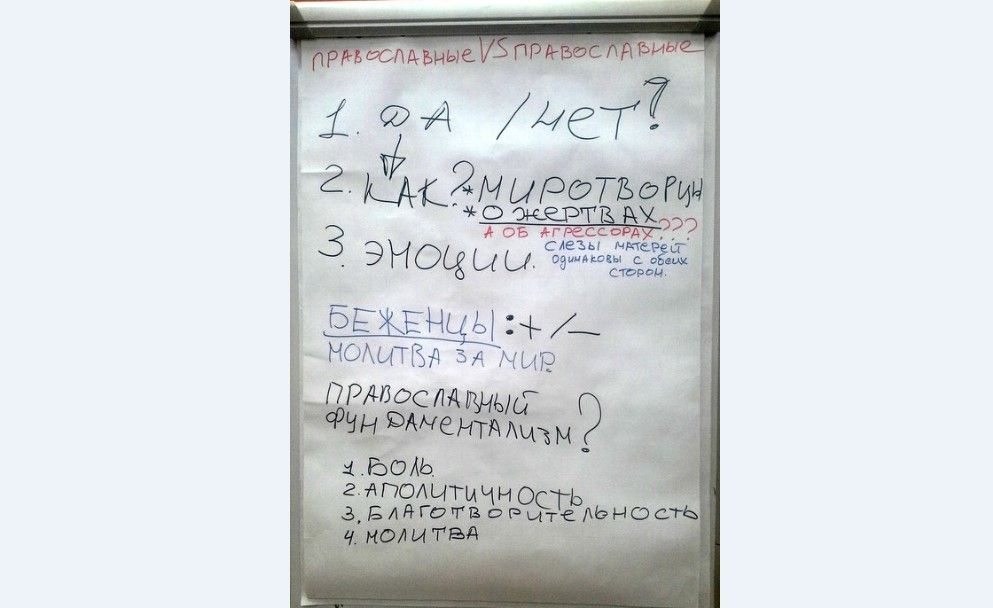 ПРАВОСЛАВНЫЕ VS ПРАВОСЛАВНЫЕ
1. ДА / НЕТ?
2. КАК? * МИРОТВОРЦЫ
* О ЖЕРТВАХ
А ОБ АГРЕССОРАХ???
3. ЭМОЦИИ.
СЛЕЗЫ МАТЕРЕЙ
ОДИНАКОВЫ С ОБЕИХ
СТОРОН.
БЕЖЕНЦЫ: + / –
МОЛИТВА ЗА МИР.
ПРАВОСЛАВНЫЙ
ФУНДАМЕНТАЛИЗМ?
1. БОЛЬ.
2. АПОЛИТИЧНОСТЬ
3. БЛАГОТВОРИТЕЛЬНОСТЬ
4. МОЛИТВА